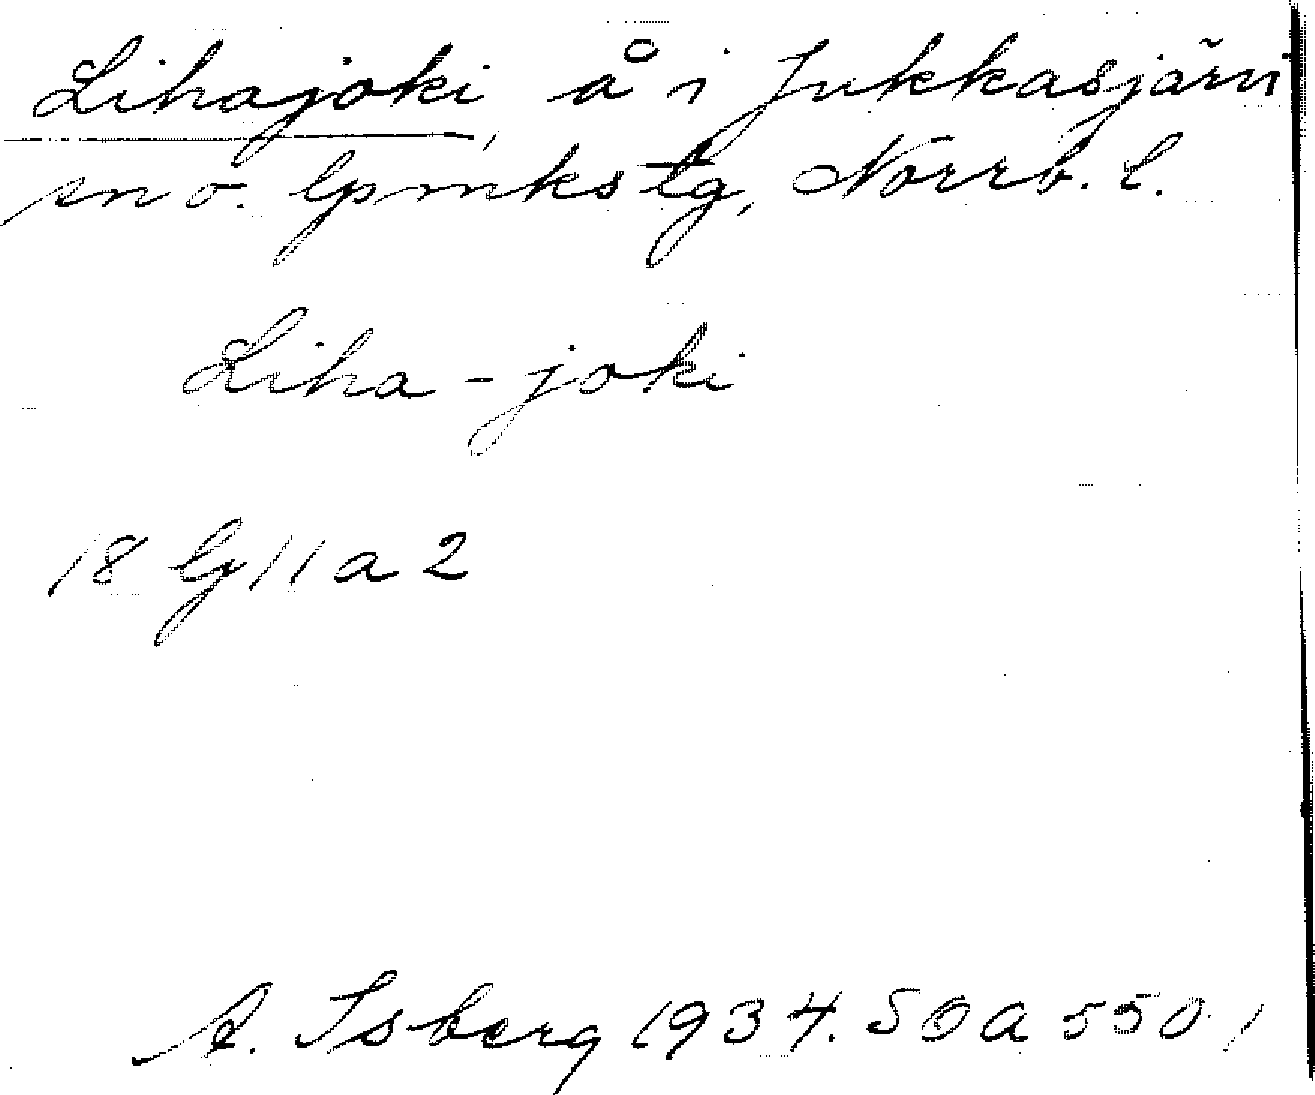 Lihajoki, å i Jukkasjärvi
sn o. lpmkstg, Norrb. l.
Liha - joki
18 G 11 a 2
A. Isberg 1934. SOA 550 1